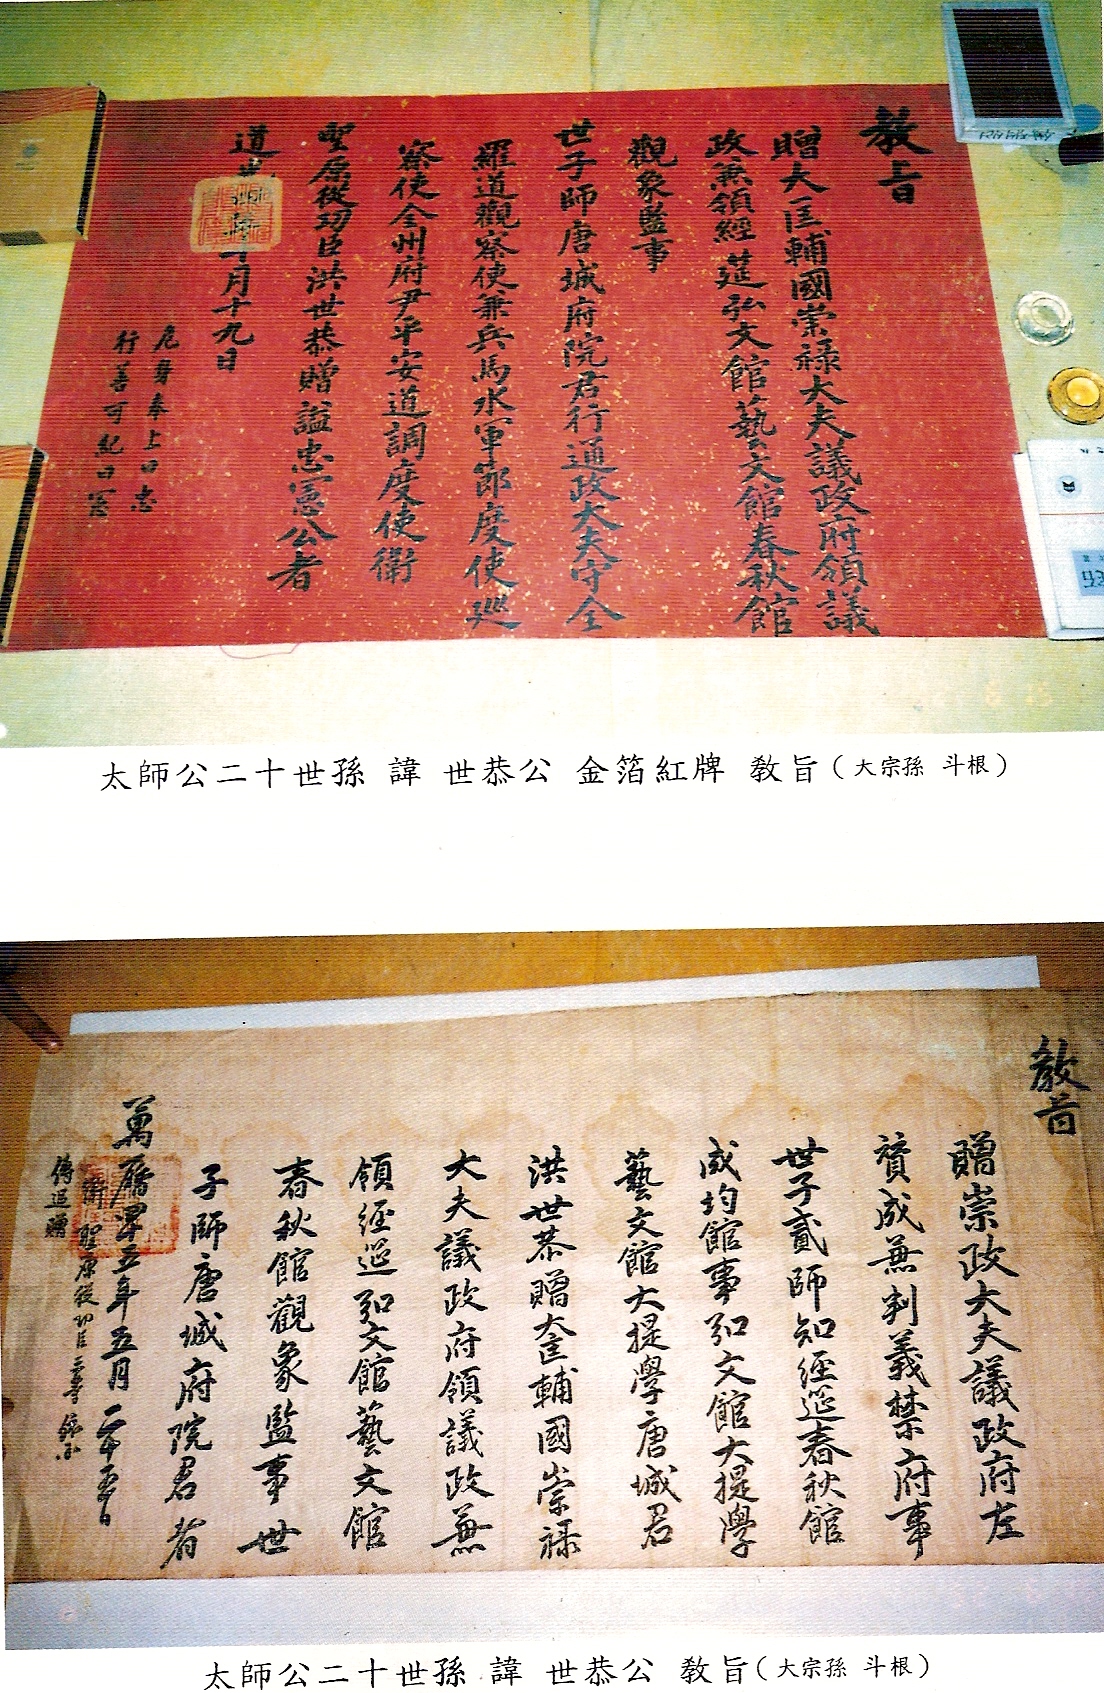 教旨
贈大匡輔國崇祿大夫議政府領議
政兼領經筵弘文館藝文館春秋館
觀象監事
世子師唐城府院君行通政大夫守全
羅道觀察使兼兵馬水軍節度使巡
察使全州府尹平安道調度使衛
聖原從功臣洪世恭贈諡忠憲公者
道光 十月十九日
危身奉上曰忠
行善可紀曰憲
太師公二十世孫 諱 世恭公 金箔紅牌 敎旨(大宗孫 斗根)
敎旨
贈崇政大夫議政府左
贊成兼判義禁府事
世子貳師知經筵春秋館
成均館事弘文館大提學
藝文館大提學唐城君
洪世恭贈大匡輔國崇祿
大夫議政府領議政兼
領經筵弘文館藝文館
春秋館觀象監事世
子師唐城府院君者
萬曆 五年五月二十五日
衛聖原從功臣一等
太師公二十世孫 諱 世恭公 敎旨(大宗孫 斗根)